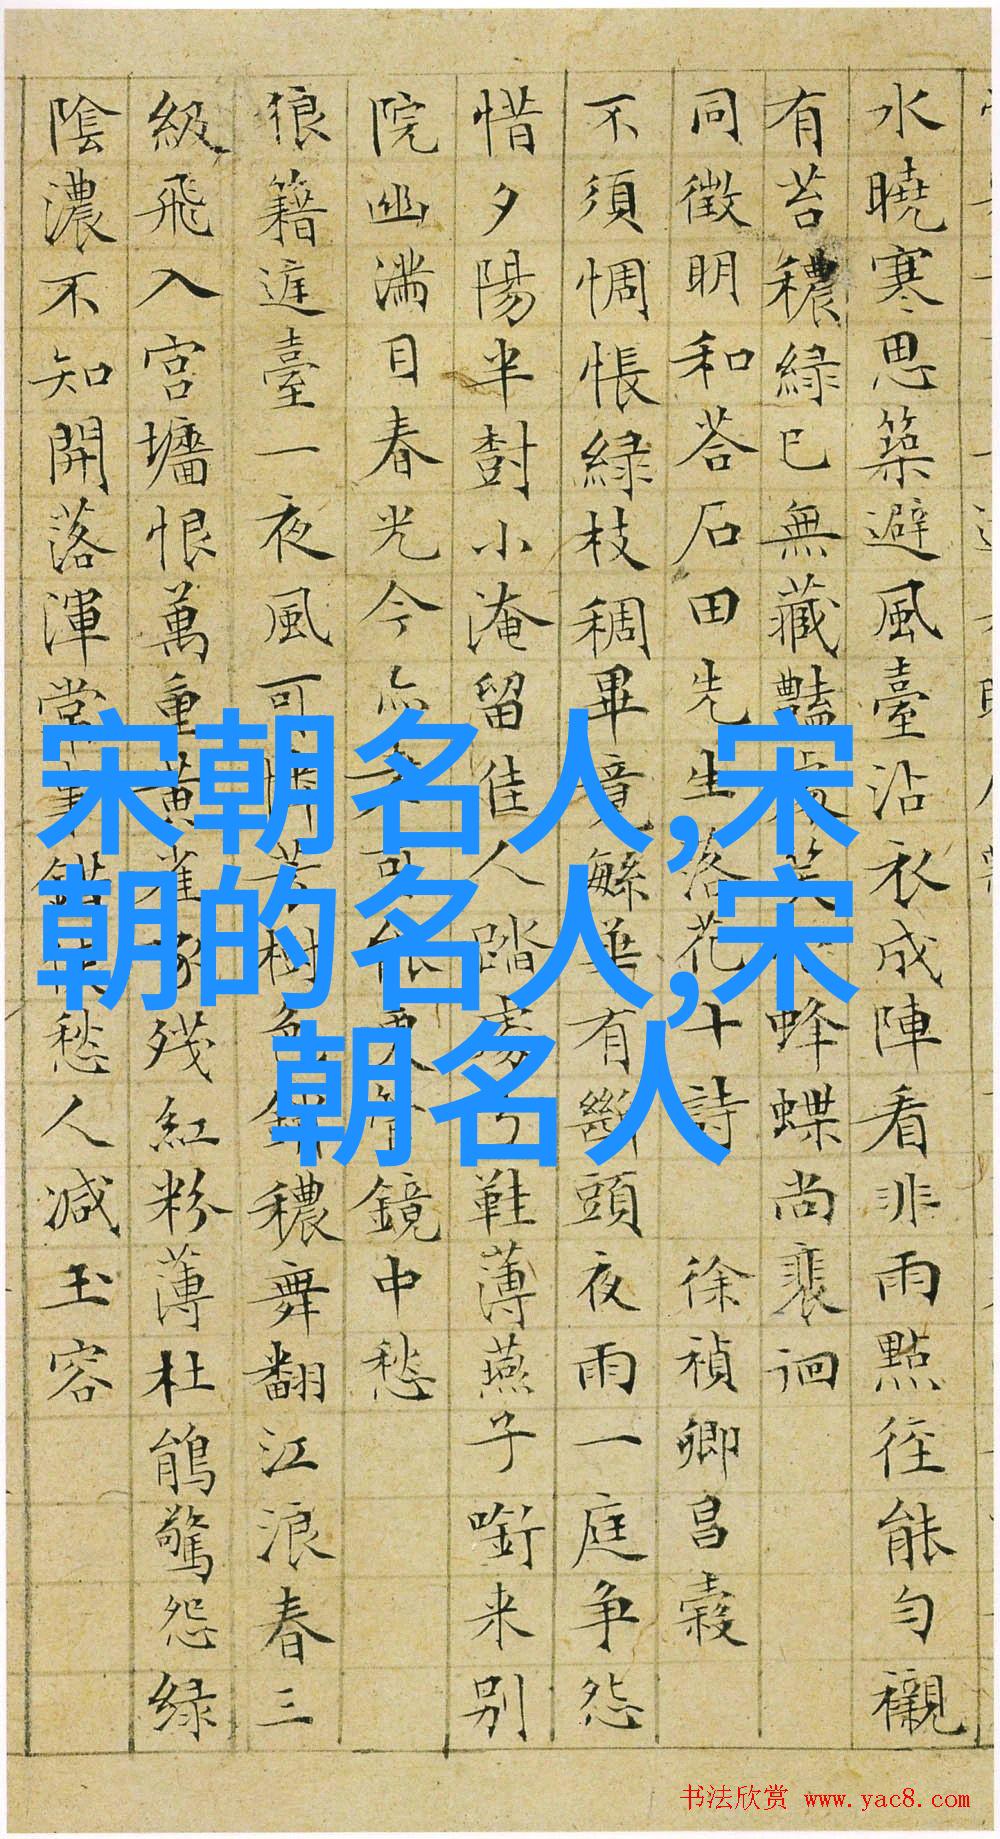 水曉寒思築避風臺沾衣成陣看非雨點徑能勻襯
有苔穠緑已無藏豔蜂蝶尚裵徊
同徵明和荅石田先生落花十詩 徐禎卿昌穀
不須惆悵緑枝稠畢竟緐華有斷頭夜雨一庭争怨
惜夕陽半樹小淹留佳人踏處弓鞋薄燕子啣来别
院幽滿目春光今鏡中愁
狼籍庭臺一夜風可樹穠舞翻江浪春三
級飛入宫墻恨萬重黄雀殘紅粉薄杜鵑驚怨緑
陰濃不知開落渾常愁人减玉容
宋朝名人,宋
朝的名人,宋
朝名人
书法欣赏 www.yac8.com